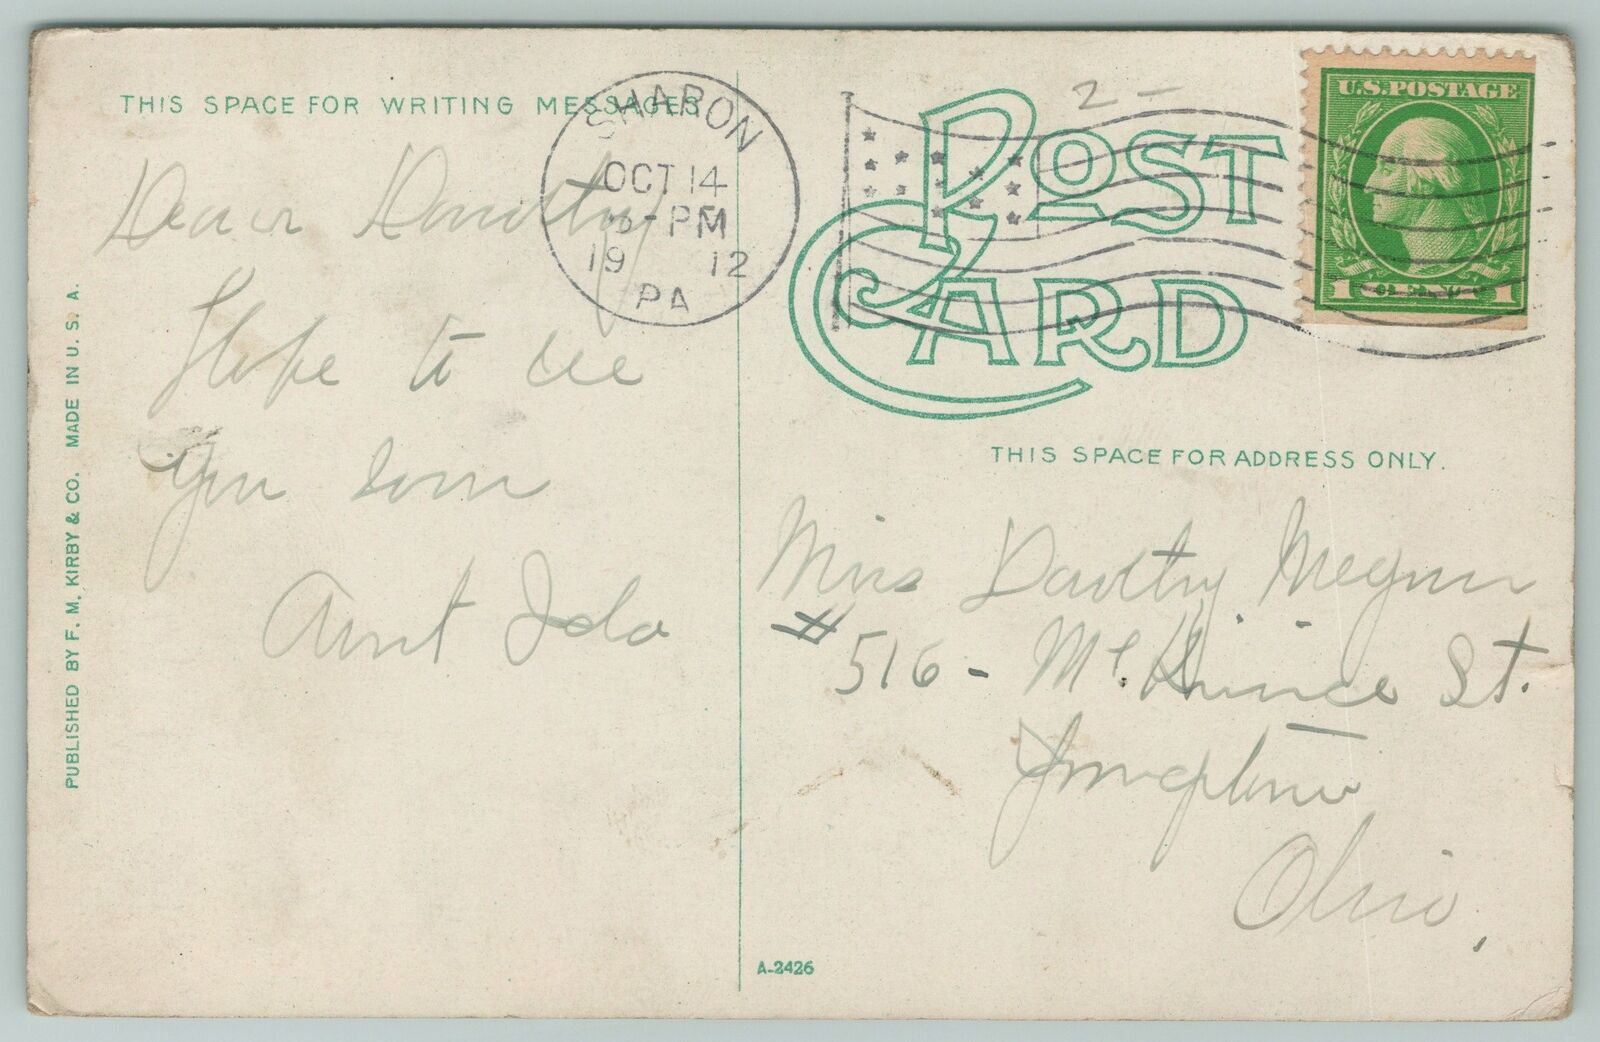 THIS SPACE FOR WRITING MESSAGES
SHARON
OCT 14
-PM
1912
PA
2-
POST
CARD
U.S. POSTAGE
1 CENT 1
Dear Dorothy
Hope to see
you soon
Aunt Ida
THIS SPACE FOR ADDRESS ONLY.
Miss Dorothy
# 516 - Mc. St.
Ohio,
PUBLISHED BY F. M. KIRBY & CO. MADE IN U. S. A.
A-2426